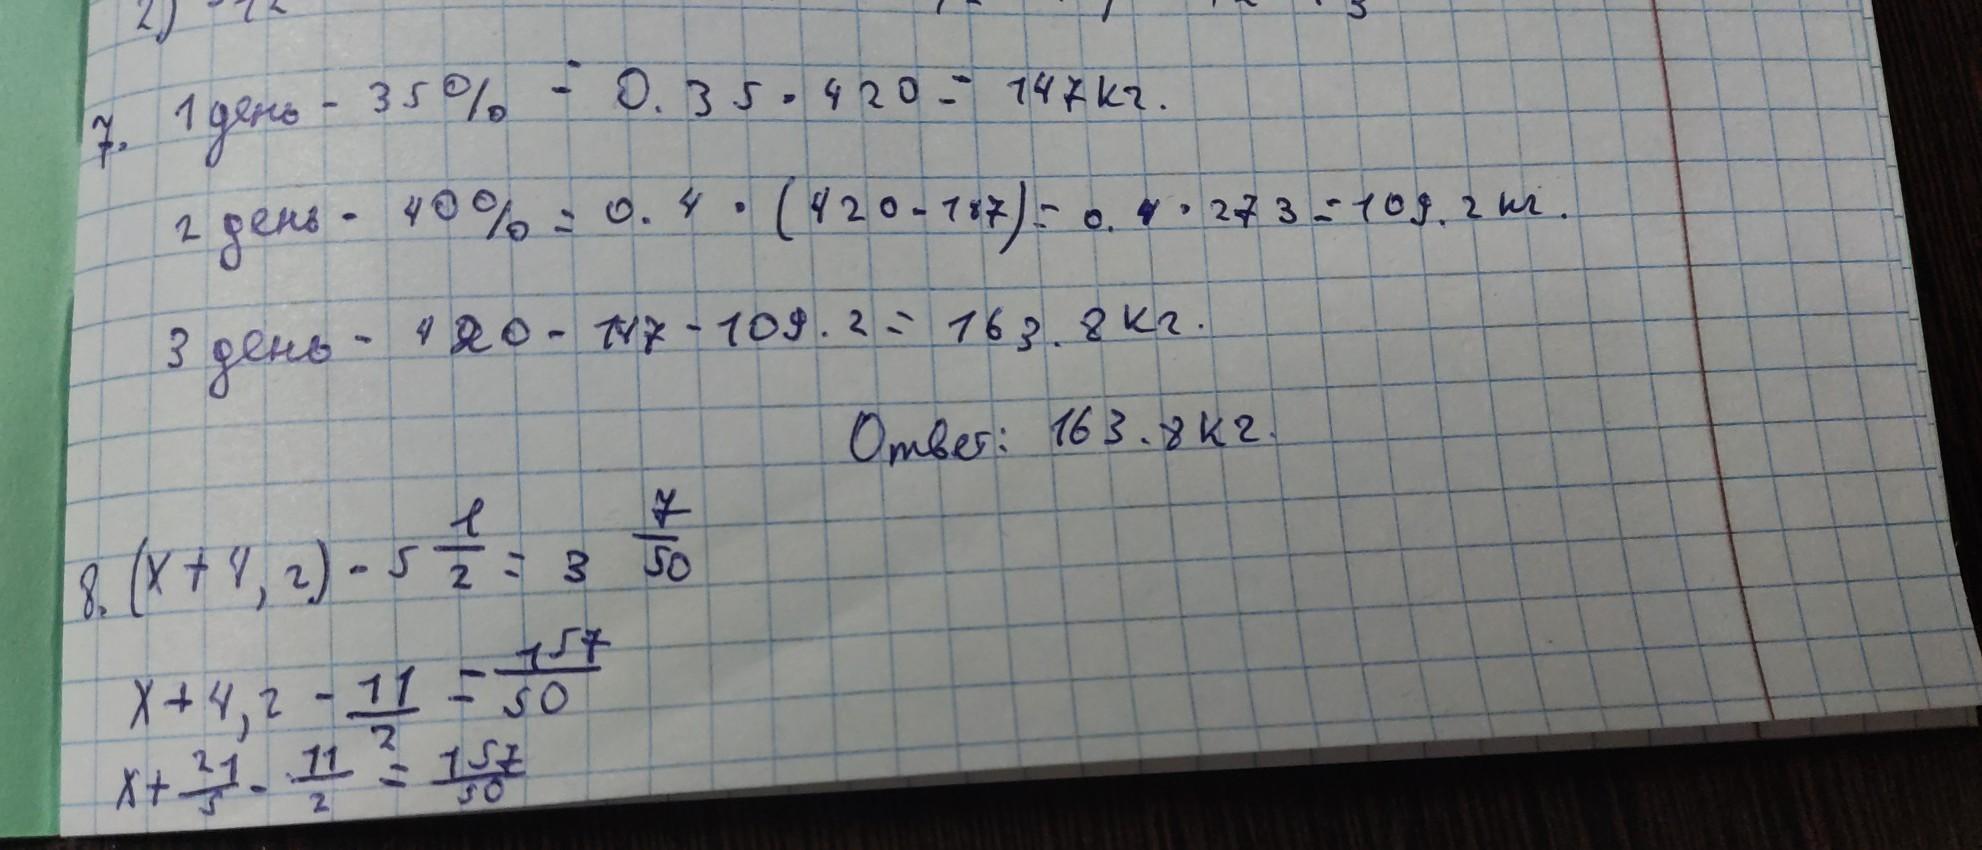 2) -12
7. 1 день - 35% = 0.35 · 420 = 147кг.
2 день - 40% = 0.4 · (420 - 147) = 0.4 · 273 = 109.2 кг.
3 день - 420 - 147 - 109.2 = 163.8 кг.
Ответ: 163.8 кг.
8. (x + 4,2) - 5 1/2 = 3 7/50
x + 4,2 - 11/2 = 157/50
x + 21/5 - 11/2 = 157/50